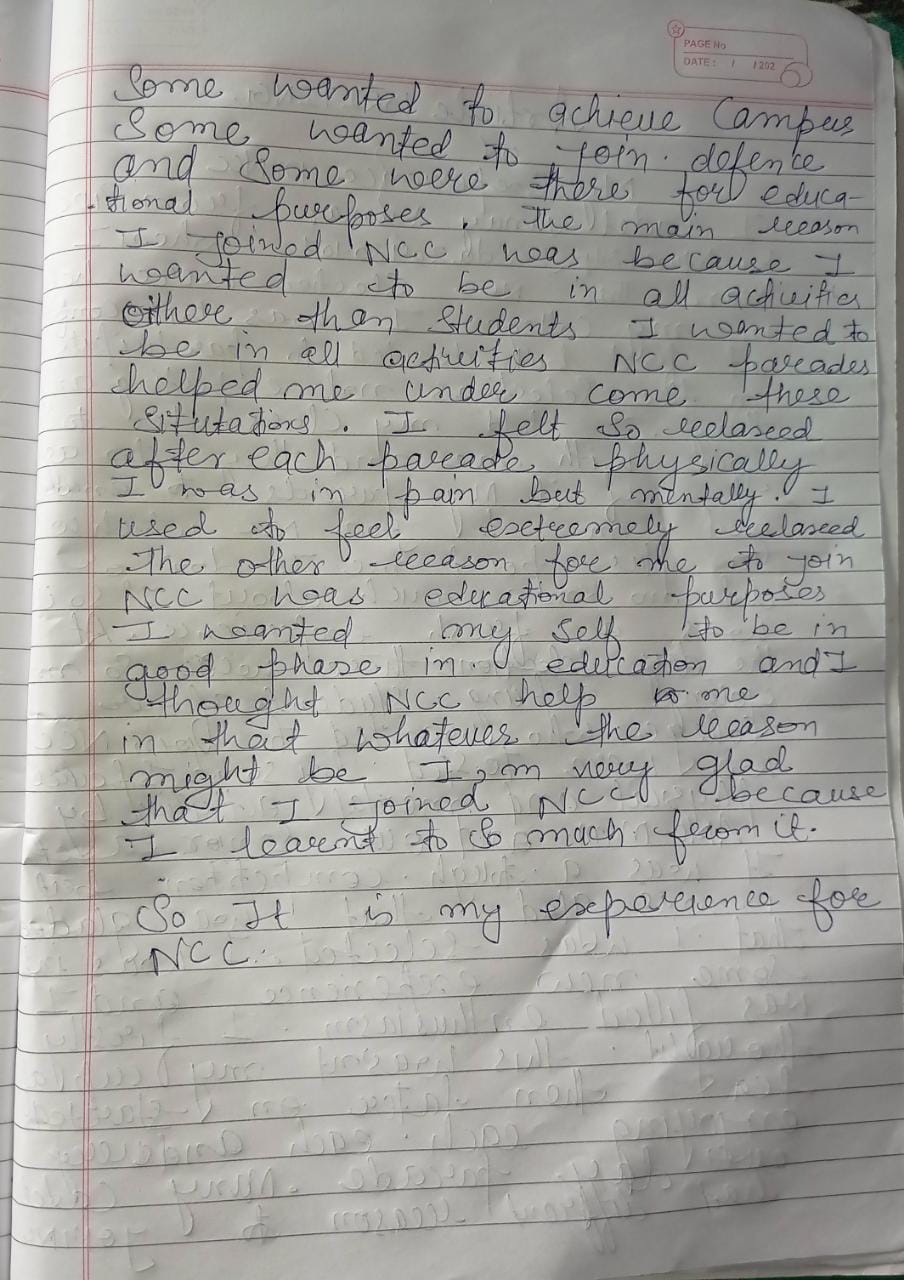 PAGE No
DATE: / /202
Some wanted to achieve Campus
Some wanted to join. defence
and Some were there for educa-
tional purposes. The main reason
I joined NCC was because I
wanted to be in all activities
other than Students I wanted to
be in all activities NCC parades
helped me under come these
situtations. I felt so relaxed
after each parade, physically
I was in pain but mentally. I
used to feel extremely relaxed
The other reason for me to join
NCC was educational purposes
I wanted my self to be in
good phase in educcation and I
thought NCC help me
in that whatever the reason
might be I,m very glad
that I joined NCC because
I learnt to so much from it.
So It is my experience for
NCC.